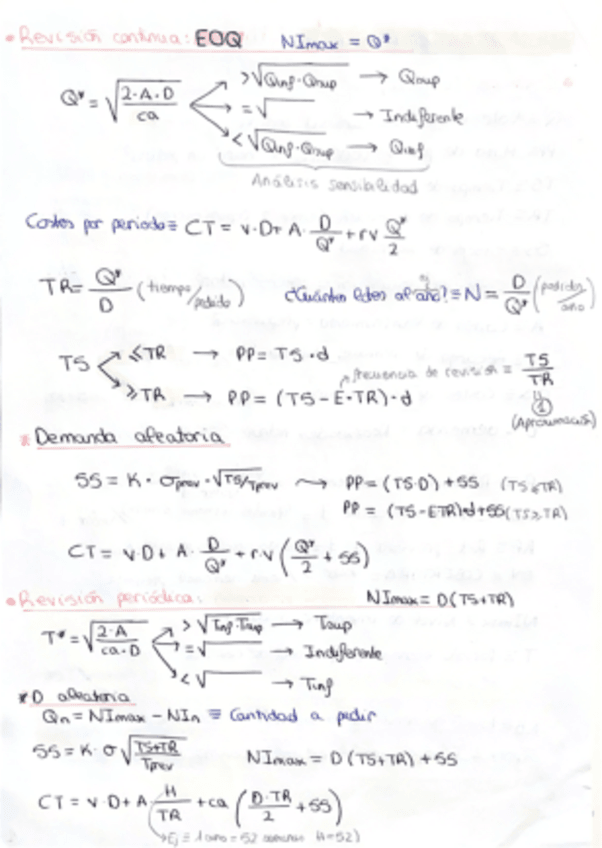 • Revisión continua: EOQ NImax = Q*
Q* = √(2·A·D / ca) > √(Qinf·Qsup) → Qsup
= √ → Indiferente
< √(Qinf·Qsup) → Qinf
Análisis sensibilidad
Costes por periodo ≡ CT = v·D + A · D/Q* + rv Q*/2
TR = Q*/D (tiempo/pedido) ¿Cuántos lotes al año? ≡ N = D/Q* (pedidos/año)
TS ≤ TR → PP = TS · d
frecuencia de revisión ≡ TS/TR
≥ TR → PP = (TS - E·TR)·d
(Aproximación)
* Demanda aleatoria
SS = K · σprev · √(TS/Tprev) → PP = (TS·D) + SS (TS≤TR)
PP = (TS-ETR)·d+SS (TS≥TR)
CT = v·D + A · D/Q* + r·v (Q*/2 + SS)
• Revisión periódica: NImax = D(TS+TR)
T* = √(2·A / ca·D) > √(Tinf·Tsup) → Tsup
= √ → Indiferente
< √ → Tinf
* D aleatoria
Qn = NImax - NIn ≡ Cantidad a pedir
SS = K·σ √(TS+TR / Tprev) NImax = D(TS+TR) + SS
CT = v·D + A · H/TR + ca (D·TR/2 + SS)
→ Ej ≡ 1 año = 52 semanas H=52)